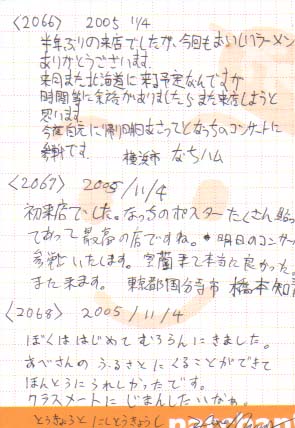 〈2066〉 2005 11/4
半年ぶりの来店でしたが、今回もおいしいラーメン
ありがとうございます。
来月また北海道に来る予定なんですが
時間等に余裕がありましたらまた来店しようと
思います。
今夜 に帰り明日 なっちのコンサートに
参戦です。 横浜市 なちハム
〈2067〉 2005/11/4
初来店でした。なっちのポスターたくさん貼っ
てあって最高の店ですね。明日のコンサート
参戦いたします。室蘭 来て本当に良かった。
また来ます。 東京都国分寺市 橋本知
〈2068〉 2005/11/4
ぼくははじめてむろらんにきました。
あべさんのふるさとにくることができて
ほんとうにうれしかったです。
クラスメートにじまんしたいなぁ。
とうきょうと にしとうきょうし